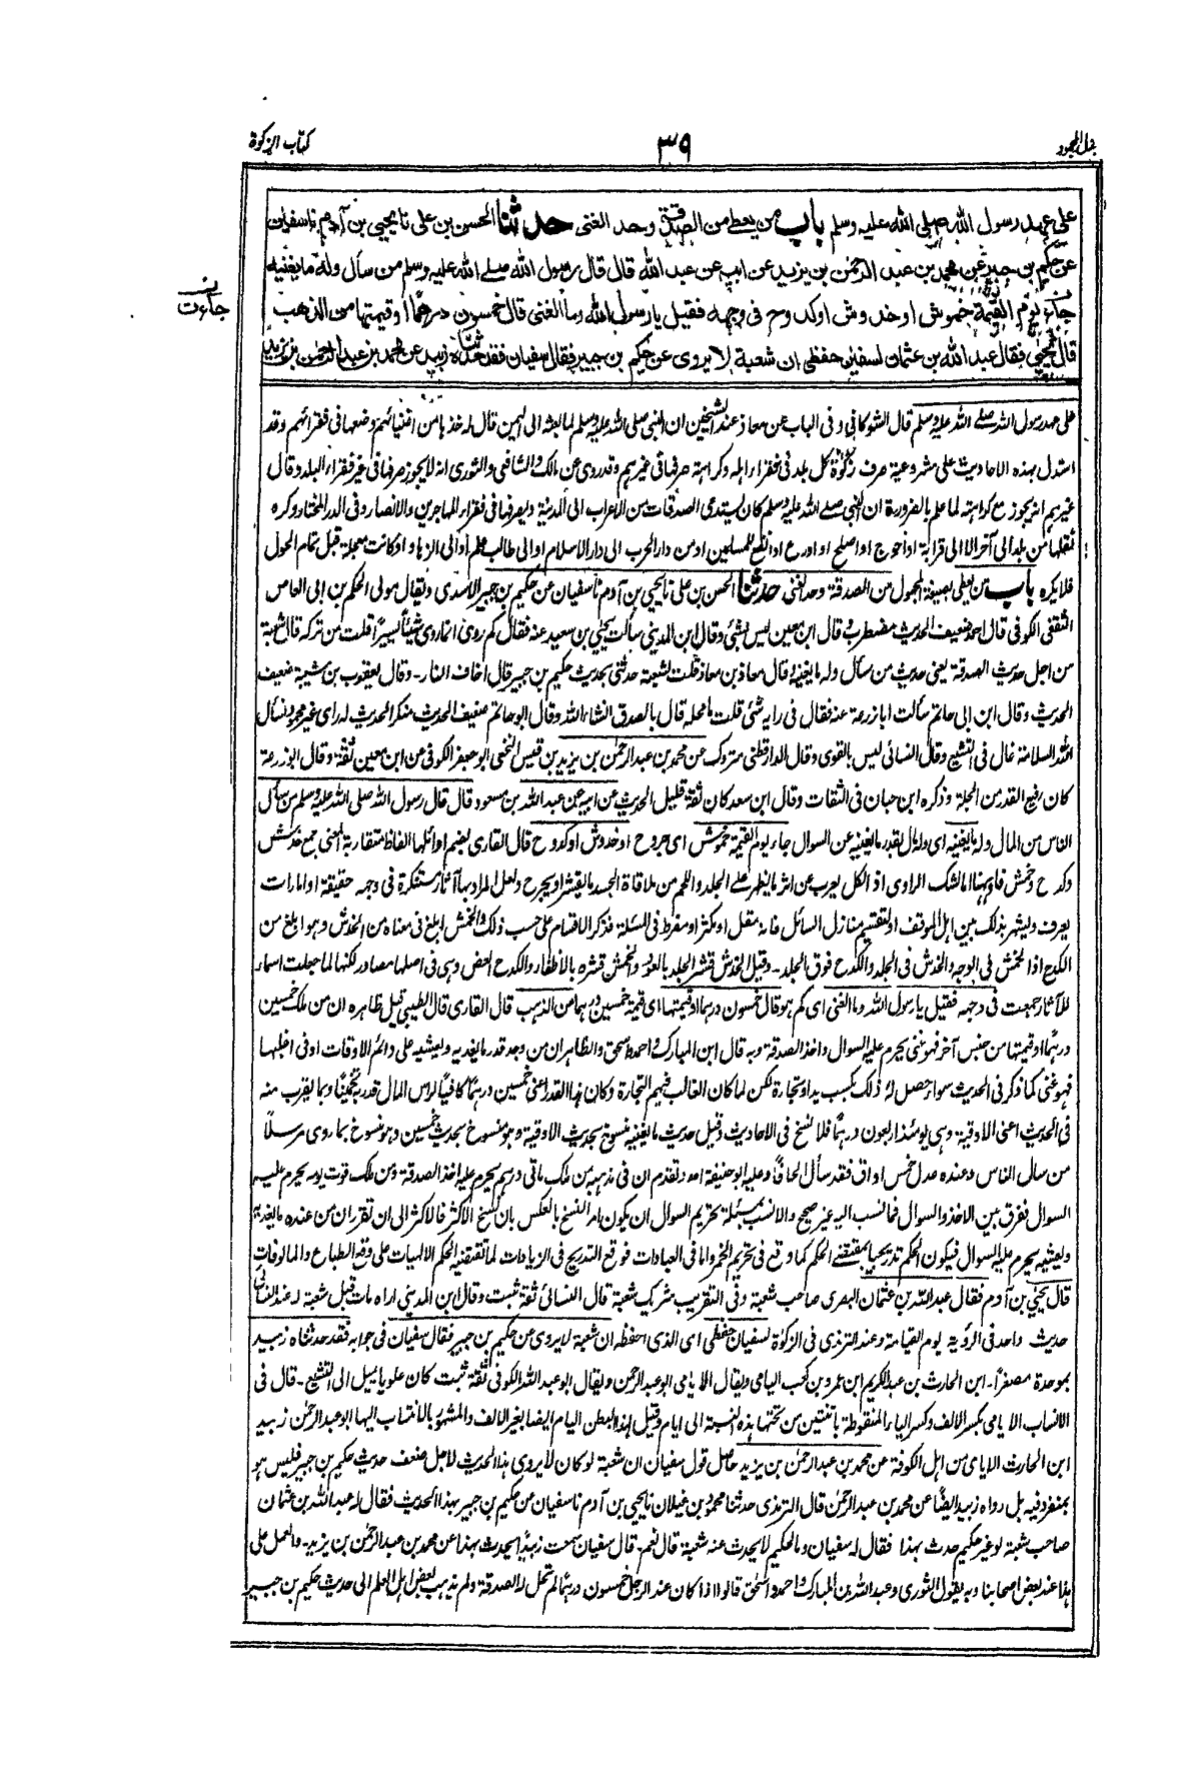 بذل المجهود
٣٩
كتاب الزكوة
على عهد رسول الله صلى الله عليه وسلم باب من يعطى من الصدقة وحد الغنى حدثنا الحسن بن على نا يحيى بن آدم نا سفيان
عن حكيم بن جبير عن محمد بن عبد الرحمن بن يزيد عن ابيه عن عبد الله قال قال رسول الله صلے الله عليه وسلم من سأل وله ما يغنيه
جاء يوم القيمة خموش او خدوش او كدوح فى وجهه فقيل يا رسول الله وما الغنى قال خمسون درهما او قيمتها من الذهب
قال يحيى فقال عبد الله بن عثمان لسفين حفظى ان شعبة لا يروى عن حكيم بن جبير فقال سفيان فقد حدثناه زبيد عن محمد بن عبد الرحمن بن يزيد
جاءت
على عهد رسول الله صلے الله عليه وسلم قال الشوكانى وفى الباب عن معاذ عند الشيخين ان النبى صلى الله عليه وسلم لما بعثه الى اليمن قال له خذها من اغنيائهم وضعها فى فقرائهم وقد
استدل بهذه الاحاديث على مشروعية صرف زكوة كل بلد فى فقراء اهله وكراهية صرفها فى غيرهم وقد روى عن مالك والشافعى والثورى انه لا يجوز صرفها فى غير فقراء البلد وقال
غيرهم انه يجوز مع كراهته لما علم بالضرورة ان النبى صلے الله عليه وسلم كان يستدعى الصدقات من الاعراب الى المدينة ويصرفها فى فقراء المهاجرين والانصار وفى الدر المختار وكره
نقلها من بلد الى آخر الا الى قرابة او احوج او اصلح او اورع او انفع للمسلمين او من دار الحرب الى دار الاسلام او الى طالب علم او الى الزهاد او كانت معجلة قبل تمام الحول
فلا يكره باب من يعطى بصيغة المجهول من الصدقة وحد الغنى حدثنا الحسن بن على نا يحيى بن آدم نا سفيان عن حكيم بن جبير الاسدى ويقال مولى الحكم بن ابى العاص
الثقفى الكوفى قال احمد ضعيف الحديث مضطرب وقال ابن معين ليس بشئ وقال ابن المدينى سألت يحيى بن سعيد عنه فقال كم روى انما روى شيئا يسيرا قلت من تركه قال شعبة
من اجل حديث الصدقة يعنى حديث من سأل وله ما يغنيه وقال معاذ بن معاذ قلت لشعبة حدثنى بحديث حكيم بن جبير قال اخاف النار - وقال يعقوب بن شيبة ضعيف
الحديث وقال ابن ابى حاتم سألت ابا زرعة عنه فقال فى رايه شئ قلت ما محله قال بالصدق انشاء الله وقال ابو حاتم ضعيف الحديث منكر الحديث له راى غير محمود نسأل
الله السلامة غال فى التشيع وقال النسائى ليس بالقوى وقال الدارقطنى متروك عن محمد بن عبد الرحمن بن يزيد بن قيس النخعى ابو جعفر الكوفى عن ابن معين ثقة وقال ابو زرعة
كان رفيع القدر من الجلة وذكره ابن حبان فى الثقات وقال ابن سعد كان ثقة قليل الحديث عن ابيه عن عبد الله بن مسعود قال قال رسول الله صلى الله عليه وسلم من سأل
الناس من المال وله ما يغنيه اى وله مال بقدر ما يغنيه عن السوال جاء يوم القيمة خموش اى جروح او خدوش او كدوح قال القارى بضم اوائلها الفاظ متقاربة المعنى جمع خدش
وكدح وخمش فاو ههنا اما لشك الراوى اذ الكل يعرب عن اثر ما يظهر على الجلد واللحم من ملاقاة الجسد ما يقشر او يجرح ولعل المراد بها آثار مستنكرة فى وجهه حقيقة او امارات
يعرف ويشهر بذلك بين اهل الموقف او لتقسيم منازل السائل فانه مقل او مكثر او مفرط فى المسئلة فذكر الاقسام على حسب ذلك والخمش ابلغ فى معناه من الخدش وهو ابلغ من
الكدح اذ الخمش فى الوجه والخدش فى الجلد والكدح فوق الجلد - وقيل الخدش قشر الجلد بالعود والخمش قشره بالاظفار والكدح العض وهى فى اصلها مصادر لكنها لما جعلت اسماء
للآثار جمعت فى وجهه فقيل يا رسول الله وما الغنى اى كم هو قال خمسون درهما او قيمتها اى قيمة خمسين درهما من الذهب قال القارى قال الطيبى قيل ظاهره ان من ملك خمسين
درهما او قيمتها من جنس آخر فهو غنى يحرم عليه السوال واخذ الصدقة وبه قال ابن المبارك واحمد واسحق والظاهر ان من وجد قدر ما يغديه ويعشيه على دائم الاوقات او فى اغلبها
فهو غنى كما ذكر فى الحديث سواء حصل له ذلك بكسب يد او تجارة لكن لما كان الغالب فيهم التجارة وكان هذا القدر اعنى خمسين درهما كافيا لراس المال قدر به تخمينا وبما يقرب منه
فى الحديث اعنى الاوقية وهى يومئذ اربعون درهما فلا نسخ فى الاحاديث وقيل حديث ما يغنيه منسوخ بحديث الاوقية وهو منسوخ بحديث خمسين وهو منسوخ بما روى مرسلا
من سال الناس وعنده عدل خمس اواق فقد سأل الحافا وعليه ابو حنيفة اه وتقدم ان فى مذهبه من ملك مائتى درهم يحرم عليه اخذ الصدقة ومن ملك قوت يومه يحرم عليه
السوال ففرق بين الاخذ والسوال فما نسب اليه غير صحيح والانسب بمسئلة تحريم السوال ان يكون امر النسخ بالعكس بان نسخ الاكثر فالاكثر الى ان تقرر ان من عنده ما يغديه
ويعشيه يحرم عليه السوال فيكون الحكم تدريجيا بمقتضے الحكم كما وقع فى تحريم الخمر واما فى العبادات فوقع التدريج فى الزيادات لما تقتضيه الحكم الالهيات على وفق الطباع والمالوفات
قال يحيى بن آدم فقال عبد الله بن عثمان البصرى صاحب شعبة وفى التقريب شريك شعبة قال النسائى ثقة ثبت وقال ابن المدينى اراه مات قبل شعبة له عند النسائى
حديث واحد فى الرؤية يوم القيامة وعند الترمذى فى الزكوة لسفيان حفظى اى الذى احفظه ان شعبة لا يروى من حكيم بن جبير فقال سفيان فى جوابه فقد حدثناه زبيد
بموحدة مصغرا - ابن الحارث بن عبد الكريم ابن عمرو بن كعب اليامى ويقال الايامى ابو عبد الرحمن ويقال ابو عبد الله الكوفى ثقة ثبت كان علويا يميل الى التشيع - قال فى
الانساب الايامى بكسر الالف وكسر الياء المنقوطة باثنتين من تحتها هذه النسبة الى ايام وقيل لهذا البطن اليام ايضا بغير الالف والمشهور بالانتساب اليها ابو عبد الرحمن زبيد
ابن الحارث الايامى من اهل الكوفة عن محمد بن عبد الرحمن بن يزيد حاصل قول سفيان ان شعبة لو كان لا يروى هذا الحديث لاجل ضعف حديث حكيم بن جبير فليس هو
بمنفرد فيه بل رواه زبيد ايضا عن محمد بن عبد الرحمن قال الترمذى حدثنا محمود بن غيلان نا يحيى بن آدم نا سفيان عن حكيم بن جبير بهذا الحديث فقال له عبد الله بن عثمان
صاحب شعبة لو غير حكيم حدث بهذا فقال له سفيان وما لحكيم لا يحدث عنه شعبة قال نعم - قال سفيان سمعت زبيدا يحدث بهذا عن محمد بن عبد الرحمن بن يزيد - والعمل على
هذا عند بعض اصحابنا وبه يقول الثورى وعبد الله بن المبارك واحمد واسحاق قالوا اذا كان عند الرجل خمسون درهما لم تحل له الصدقة ولم يذهب بعض اهل العلم الى حديث حكيم بن جبير